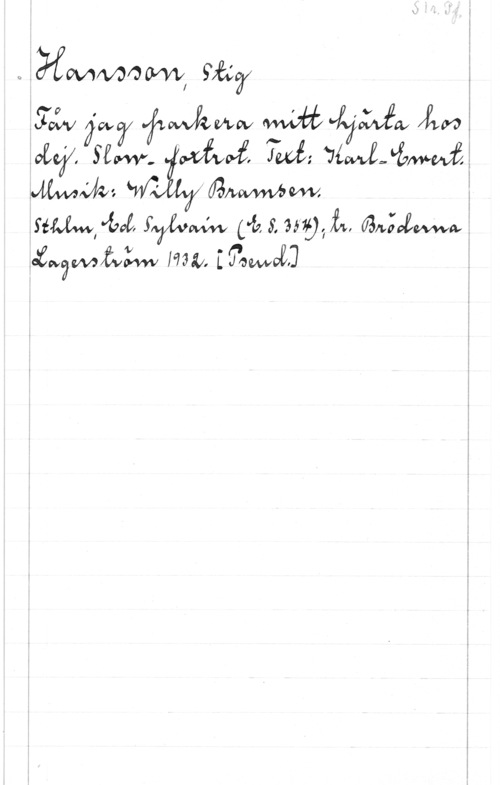 Str. Pf.
Hansson, Stig
Får jag parkera mitt hjärta hos
dej. Slow-foxtrot. Text: Karl-Ewert.
Musik: Willy Bramsen.
Sthlm, Ed. Sylvain (E. S. 354); tr. Bröderna
Lagerström 1932. [Pseud.]